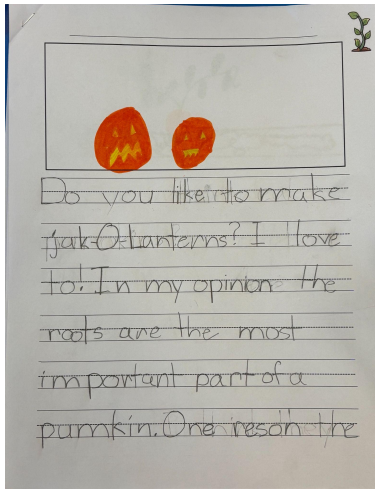 Do you like to make
jak-O-Lanterns? I love
to! In my opinion the
roots are the most
important part of a
pumkin. One reson the